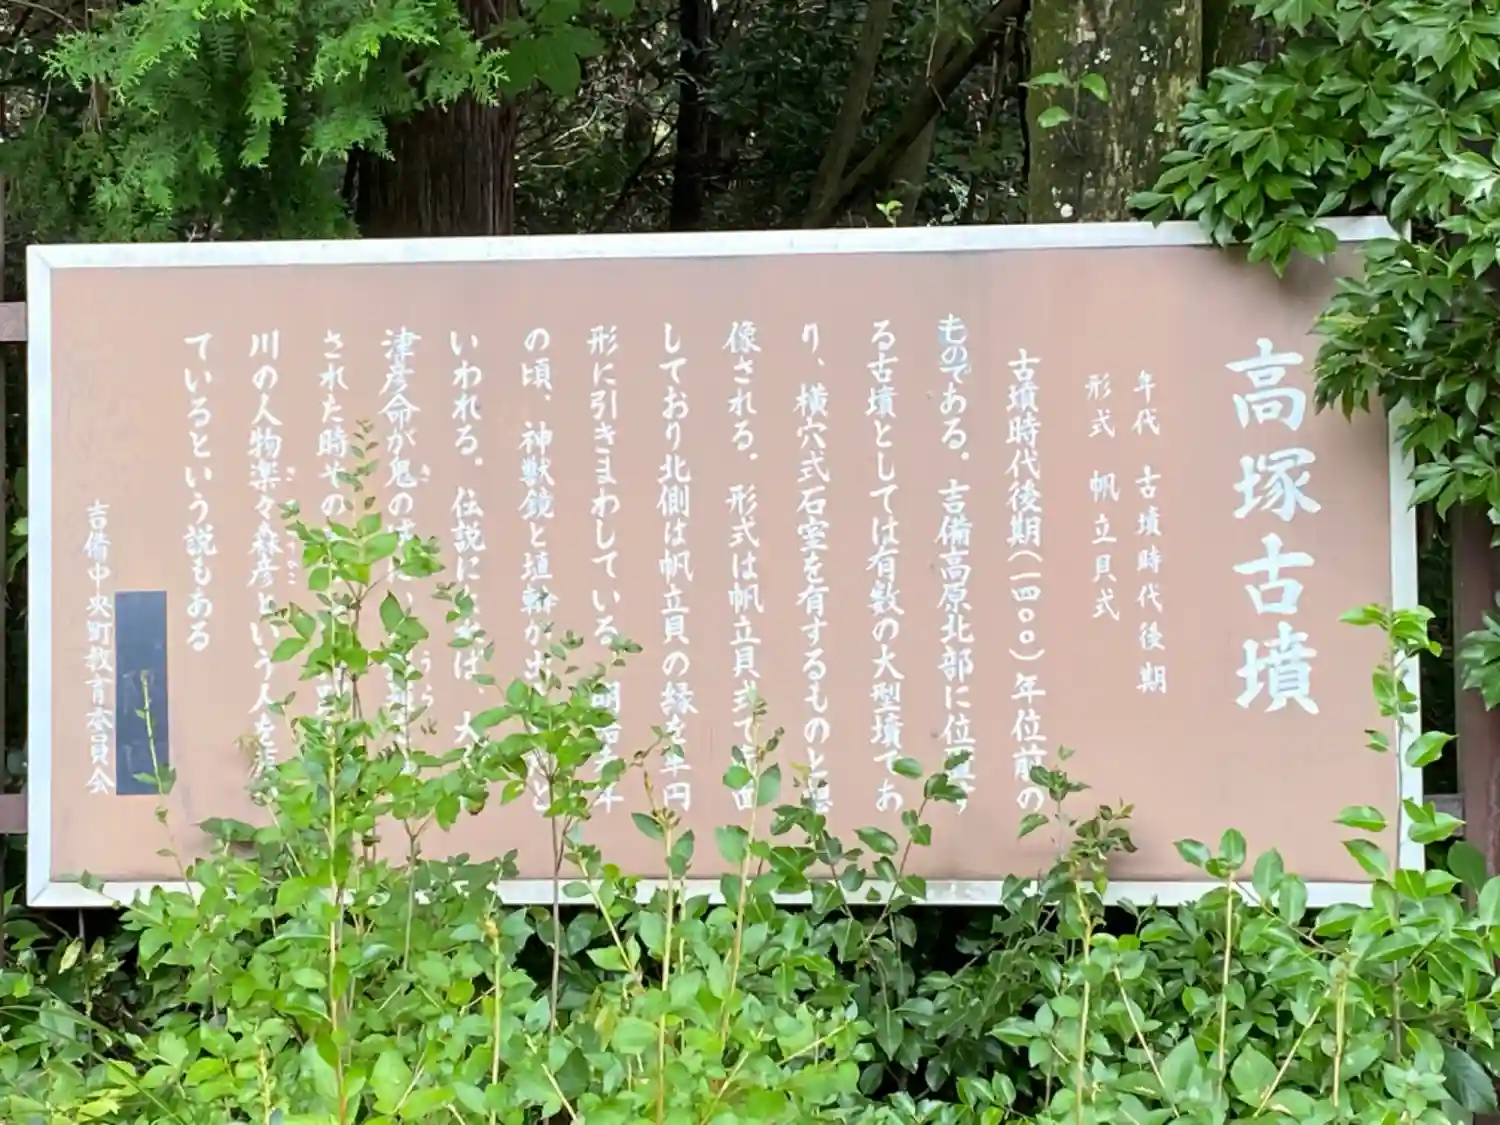 高塚古墳
年代 古墳時代後期
形式 帆立貝式
古墳時代後期(一四〇〇)年位前の
ものである。吉備高原北部に位置す
る古墳としては有数の大型墳であ
り、横穴式石室を有するものと想
像される。形式は帆立貝式で
しており北側は帆立貝の縁を半円
形に引きまわしている。明治 年
の頃、神獣鏡と埴輪が出 と
いわれる。伝説に は、大
津彦命が鬼の
された時その
川の人物楽々森彦という人を
ているという説もある
吉備中央町教育委員会